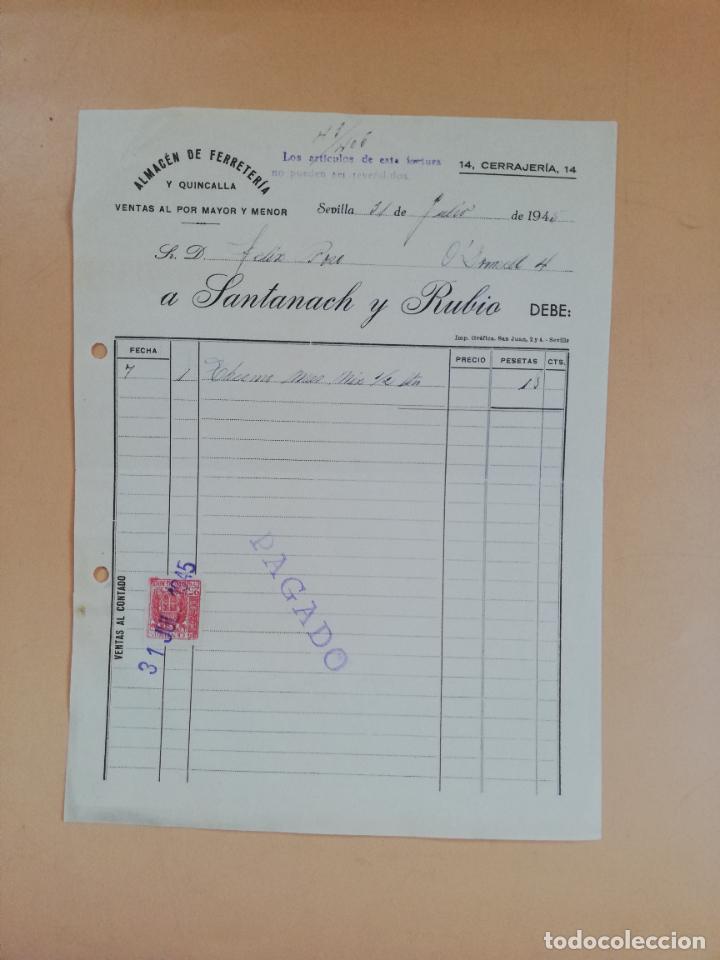 ALMACÉN DE FERRETERÍA
Y QUINCALLA
VENTAS AL POR MAYOR Y MENOR
Los artículos de esta factura
no pueden ser revendidos.
14, CERRAJERÍA, 14
Sevilla 31 de Julio de 1945
Sr. D. Felix Pozo
a Santanach y Rubio DEBE:
Imp. Gráfica. San Juan, 2 y 4. - Sevilla
FECHA PRECIO PESETAS CTS.
7 1 13
PAGADO
VENTAS AL CONTADO
31 JUL 1945
todocoleccion
todocoleccion.net